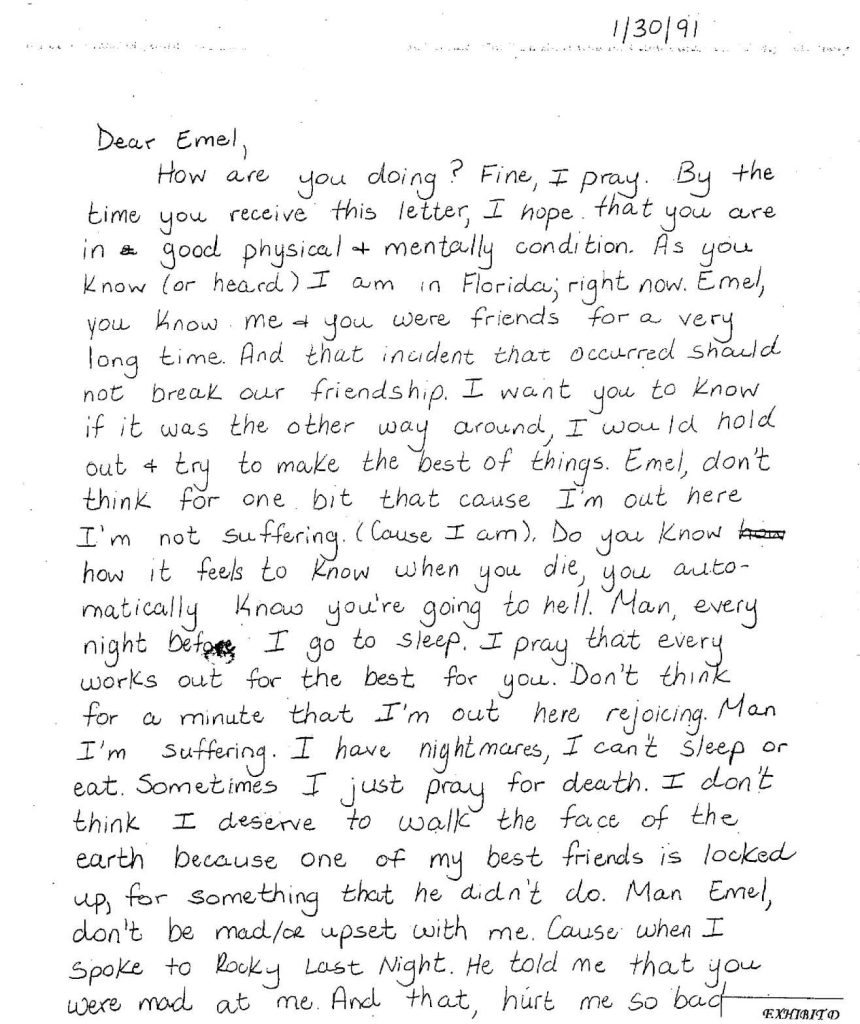 1/30/91
Dear Emel,
How are you doing? Fine, I pray. By the
time you receive this letter, I hope that you are
in a good physical + mentally condition. As you
know (or heard) I am in Florida, right now. Emel,
you know me + you were friends for a very
long time. And that incident that occurred should
not break our friendship. I want you to know
if it was the other way around, I would hold
out + try to make the best of things. Emel, don't
think for one bit that cause I'm out here
I'm not suffering. (Cause I am). Do you know how
how it feels to know when you die, you auto-
matically know you're going to hell. Man, every
night before I go to sleep. I pray that every
works out for the best for you. Don't think
for a minute that I'm out here rejoicing. Man
I'm suffering. I have nightmares, I can't sleep or
eat. Sometimes I just pray for death. I don't
think I deserve to walk the face of the
earth because one of my best friends is locked
up, for something that he didn't do. Man Emel,
don't be mad/or upset with me. Cause when I
spoke to Rocky Last Night. He told me that you
were mad at me. And that, hurt me so bad
EXHIBIT D